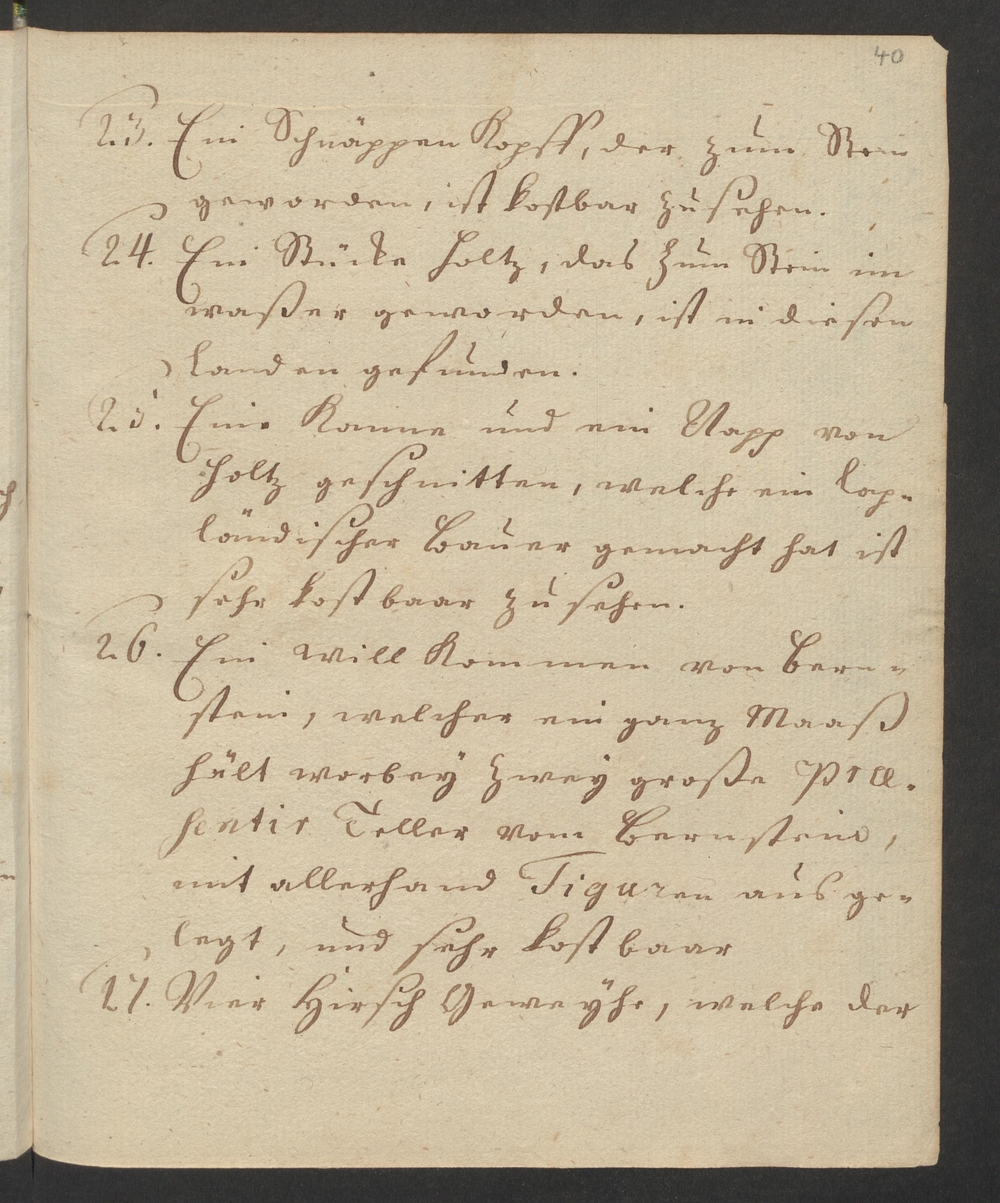 40
23. Ein Schnäppen Kopff, der zum Stein
geworden, ist kostbar zu sehen.
24. Ein Stücke Holtz, das zum Stein im
waßer geworden, ist in diesen
Landen gefunden.
25. Eine Kanne und ein Napp von
Holtz geschnitten, welche ein Lap-
ländischer Bauer gemacht hat ist
sehr kostbaar zu sehen.
26. Ein Will Kommen von Bern-
stein, welcher ein ganz Maaß
hält worbey zwey große Præ-
sentir Teller vom Bernstein,
mit allerhand Figuren ausge-
legt, und sehr kostbaar
27. Vier Hirsch Geweyhe, welche der